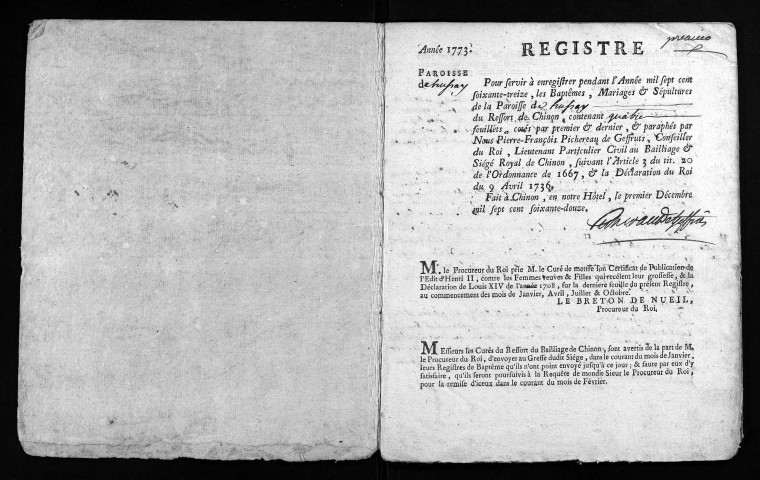 Année 1773.
REGISTRE
PAROISSE
Pour servir à enregistrer pendant l'Année mil sept cent
soixante-treize, les Baptêmes, Mariages & Sépultures
de la Paroisse
du Ressort de Chinon, contenant quatre
feuillets, cotés par premier & dernier, & paraphés par
Nous Pierre-François Pichereau de Geffruts, Conseiller
du Roi, Lieutenant Particulier Civil au Bailliage &
Siégé Royal de Chinon, suivant l'Article 3 du tit. 20
de l'Ordonnance de 1667, & la Déclaration du Roi
du 9 Avril 1736.
Fait à Chinon, en notre Hôtel, le premier Décembre
mil sept cent soixante-douze.
M. le Procureur du Roi prie M. le Curé de mettre son Certificat de Publication de
l'Edit d'Henri II, contre les Femmes veuves & Filles qui recélent leur grossesse, & la
Déclaration de Louis XIV de l'année 1708, sur la derniere feuille du présent Registre,
au commencement des mois de Janvier, Avril, Juillet & Octobre.
LE BRETON DE NUEIL,
Procureur du Roi,
MEssieurs les Curés du Ressort du Bailliage de Chinon, sont avertis de la part de M.
le Procureur du Roi, d'envoyer au Greffe dudit Siége, dans le courant du mois de Janvier,
leurs Registres de Baptême qu'ils n'ont point envoyé jusqu'à ce jour; & faute par eux d'y
satisfaire, qu'ils seront poursuivis à la Requête de mondit Sieur le Procureur du Roi,
pour la remise d'iceux dans le courant du mois de Février.